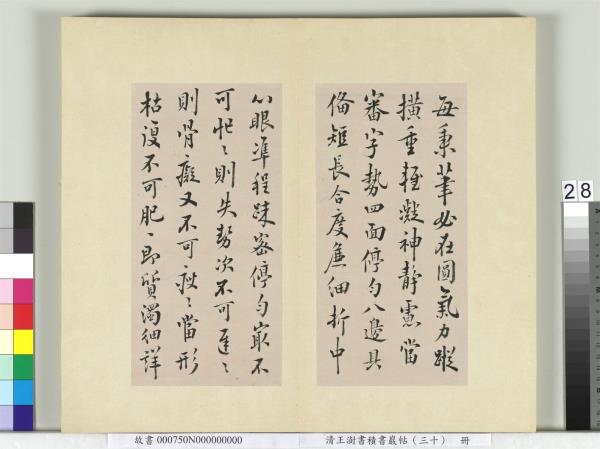 每秉筆必在圓氣力蹤
橫重輕凝神靜慮當
審字勢四面停勻八邊具
俻短長合度麁細折中
心眼準程踈密停勻最不
可忙〻則失勢次不可遲〻
則骨癡又不可瘦〻當形
枯復不可肥〻即質濁細詳
28
故書 000750N000000000
清王澍書積書巖帖（三十） 冊